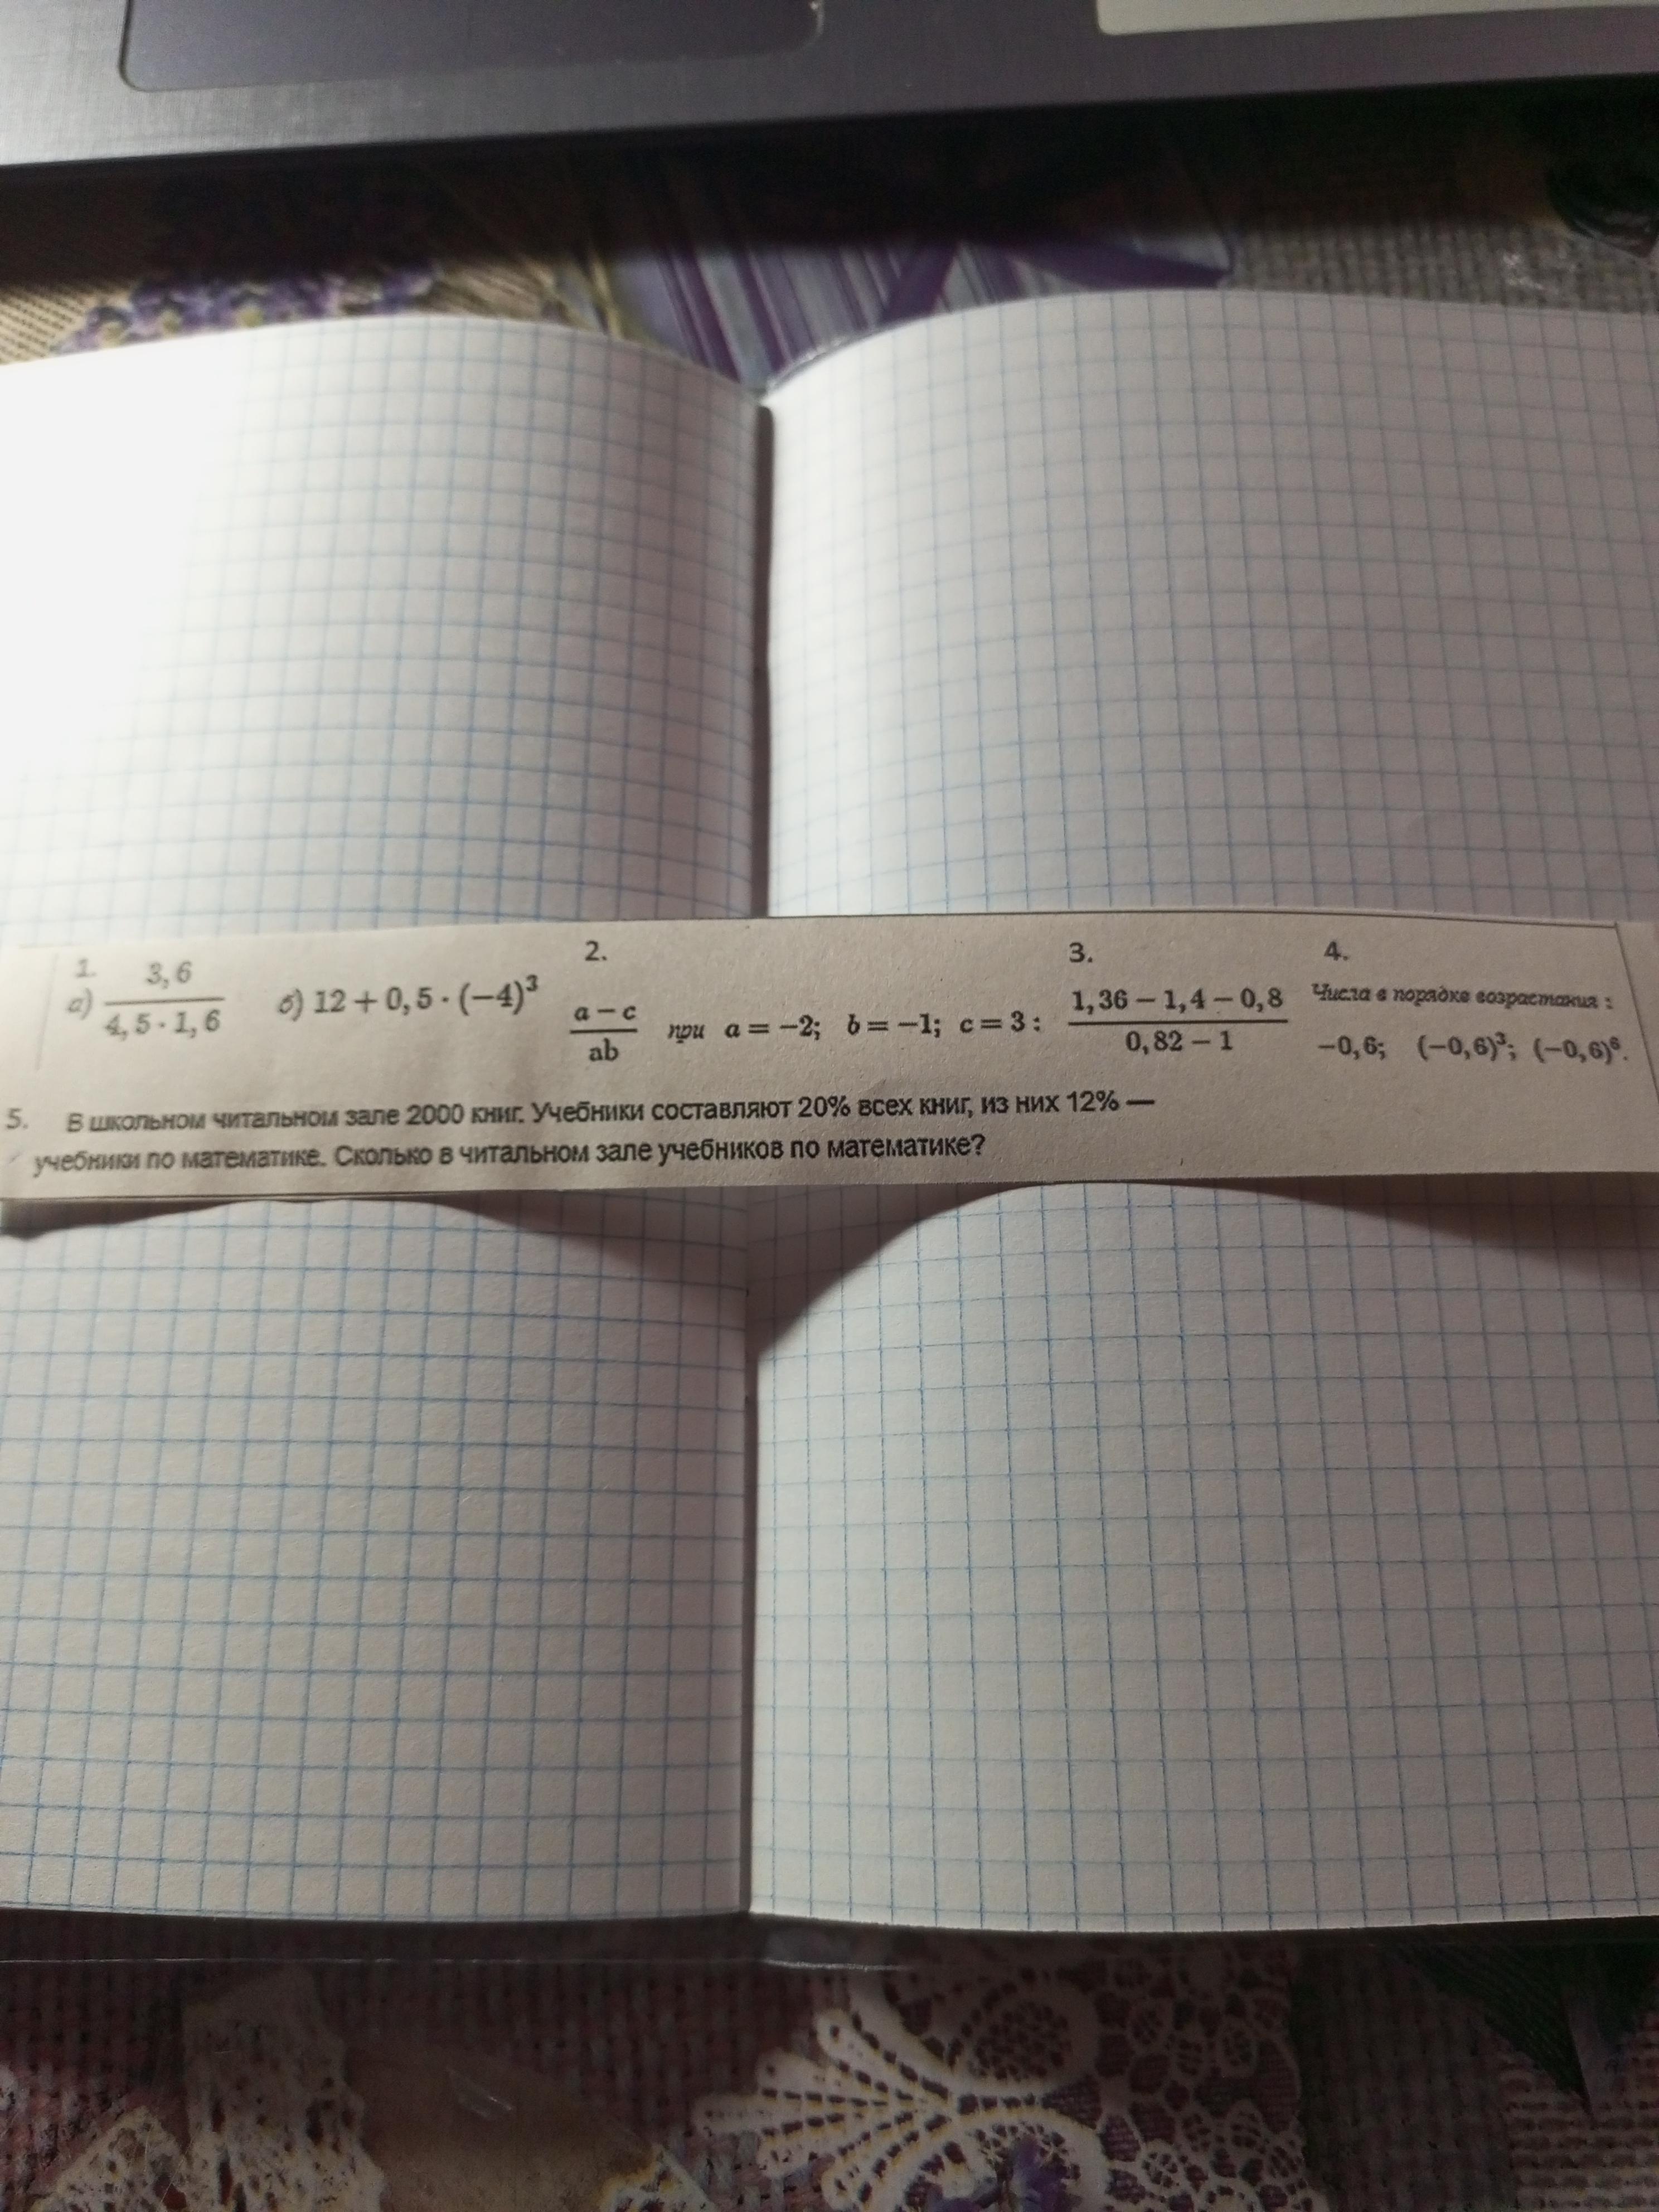 1. 2. 3. 4.
а) 3,6 / 4,5 · 1,6 б) 12 + 0,5 · (−4)³ a − c / ab при a = −2; b = −1; c = 3 : 1,36 − 1,4 − 0,8 / 0,82 − 1 Числа в порядке возрастания :
−0,6; (−0,6)³; (−0,6)⁶.
5. В школьном читальном зале 2000 книг. Учебники составляют 20% всех книг, из них 12% —
учебники по математике. Сколько в читальном зале учебников по математике?